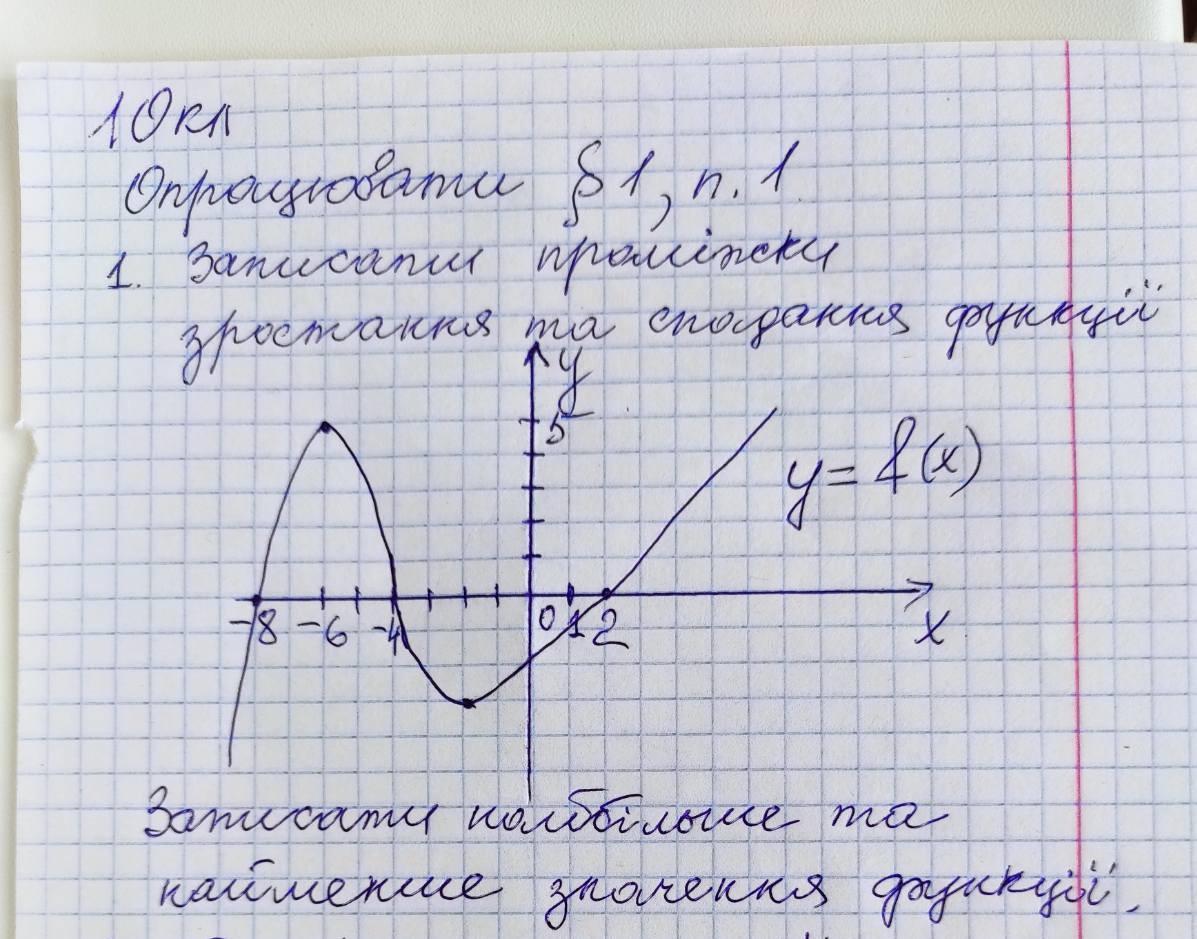 10 кл
Опрацювати § 1, п. 1
1. Записати проміжки
зростання та спадання функції
y
5
y = f(x)
-8 -6 -4 0 1 2 x
Записати найбільше та
найменше значення функції.